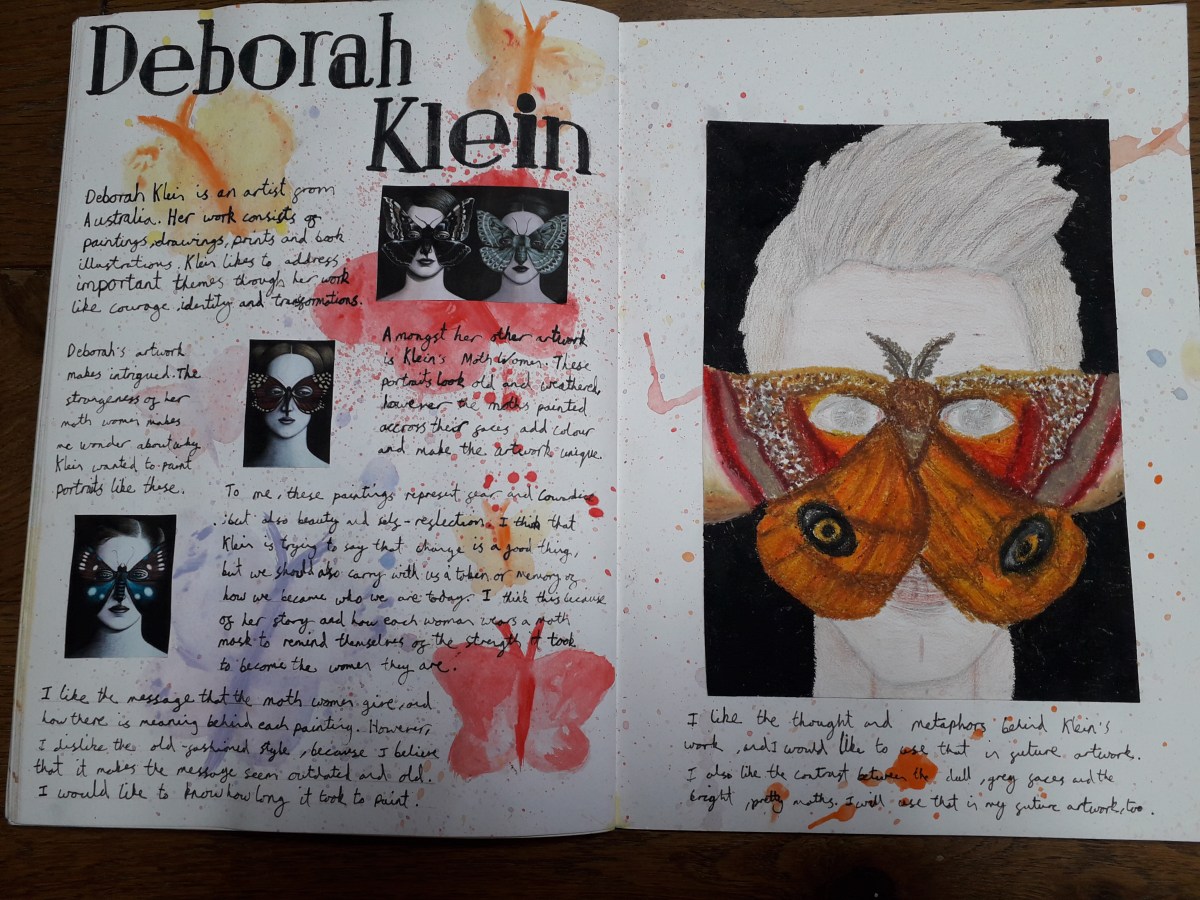 Deborah
Klein
Deborah Klein is an artist from
Australia. Her work consists of
paintings, drawings, prints and book
illustrations. Klein likes to address
important themes through her work
like courage, identity and transformations.
Deborah's artwork
makes intrigued. The
strangeness of her
moth women makes
me wonder about why
Klein wanted to paint
portraits like these.
Amongst her other artwork
is Klein's Moth Women. These
portraits look old and weathered,
however the moths painted
accross their faces add colour
and make the artwork unique.
To me, these paintings represent fear and
but also beauty and self-reflection. I think that
Klein is trying to say that change is a good thing,
but we should also carry with us a token or memory of
how we became who we are today. I think this because
of her story and how each woman wears a moth
mask to remind themselves of the strength it took
to become the women they are.
I like the message that the moth women give, and
how there is meaning behind each painting. However,
I dislike the old-fashioned style, because I believe
that it makes the message seem outdated and old.
I would like to know how long it took to paint.
I like the thought and metaphors behind Klein's
work, and I would like to use that in future artwork.
I also like the contrast between the dull, grey faces and the
bright, pretty moths. I will use that in my future artwork, too.